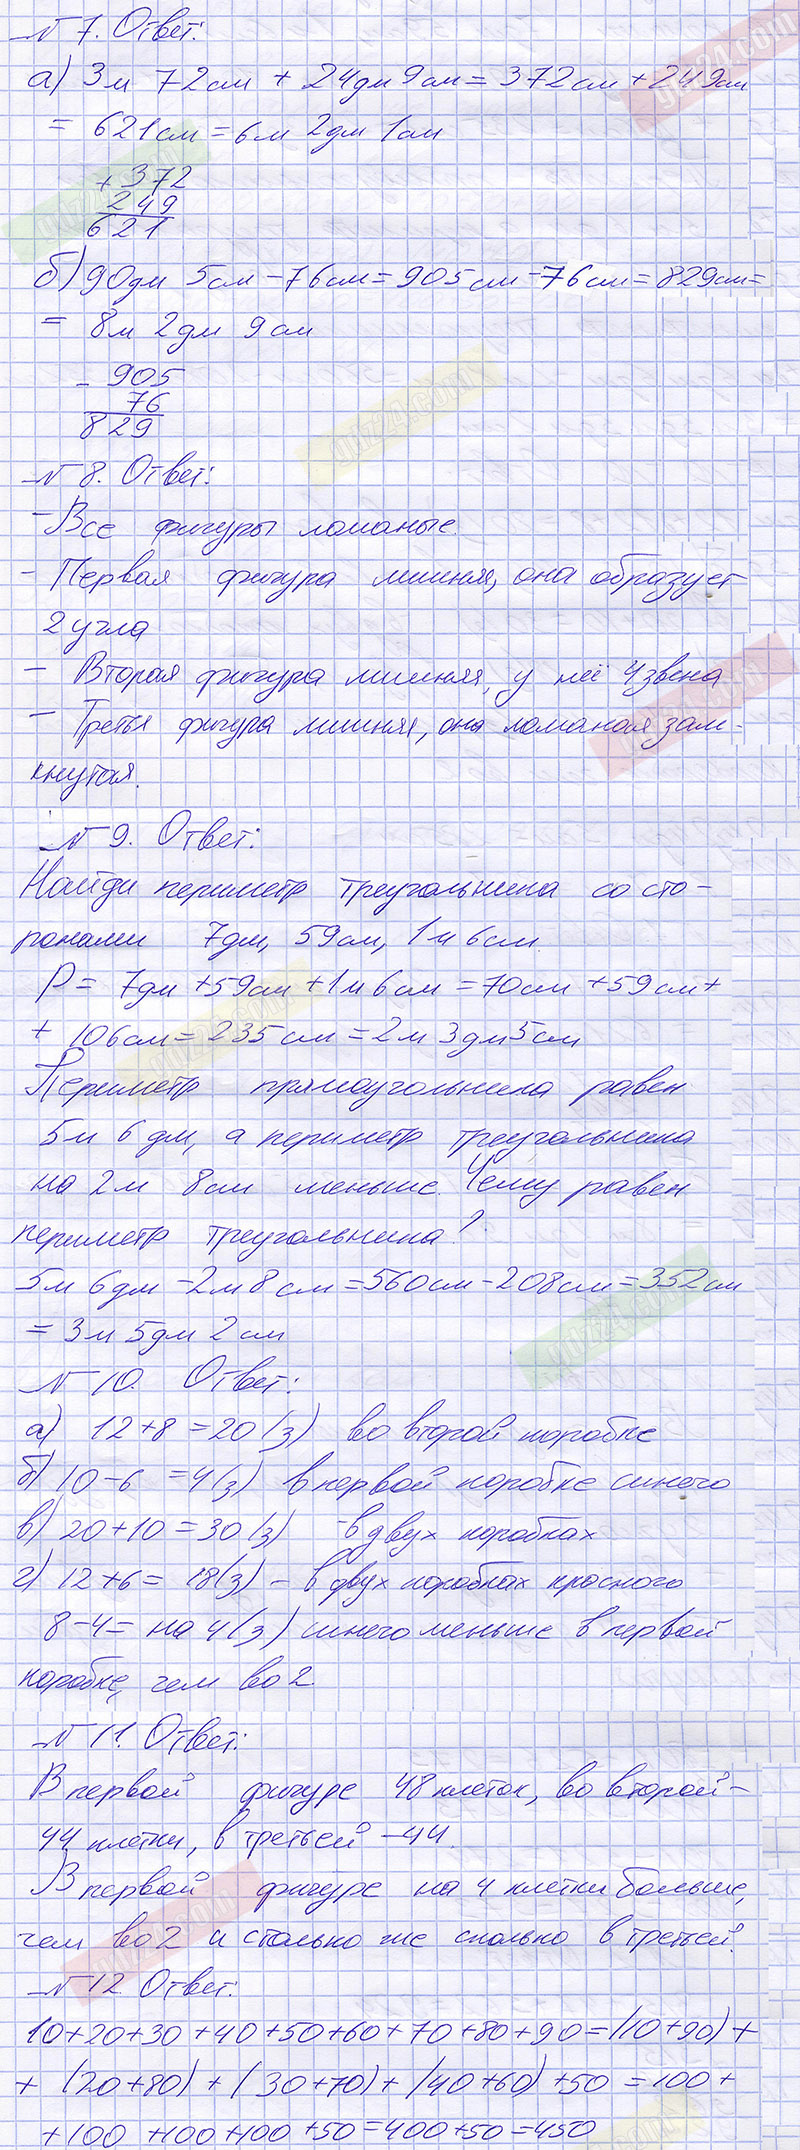 № 7. Ответ:
а) 3м 72см + 24дм 9см = 372см + 249см
= 621см = 6м 2дм 1см
+ 372
249
621
б) 90дм 5см - 76см = 905см - 76см = 829см =
= 8м 2дм 9см
- 905
76
829
№ 8. Ответ:
- Все фигуры ломаные.
- Первая фигура лишняя, она образует
2 угла
- Вторая фигура лишняя, у неё 4 звена
- Третья фигура лишняя, она ломаная зам-
кнутая.
№ 9. Ответ:
Найди периметр треугольника со сто-
ронами 7дм, 59см, 1м 6см.
P = 7дм + 59см + 1м 6см = 70см + 59см +
+ 106см = 235см = 2м 3дм 5см
Периметр прямоугольника равен
5м 6дм, а периметр треугольника
на 2м 8см меньше. Чему равен
периметр треугольника?
5м 6дм - 2м 8см = 560см - 208см = 352см
= 3м 5дм 2см
№ 10. Ответ:
а) 12 + 8 = 20 (з) во второй коробке
б) 10 - 6 = 4 (з) в первой коробке синего
в) 20 + 10 = 30 (з) - в двух коробках
г) 12 + 6 = 18 (з) - в двух коробках красного
8 - 4 = на 4 (з) синего меньше в первой
коробке, чем во 2.
№ 11. Ответ:
В первой фигуре 48 клеток, во второй -
44 клетки, в третьей - 44.
В первой фигуре на 4 клетки больше,
чем во 2 и столько же сколько в третьей.
№ 12 Ответ:
10 + 20 + 30 + 40 + 50 + 60 + 70 + 80 + 90 = (10 + 90) +
+ (20 + 80) + (30 + 70) + (40 + 60) + 50 = 100 +
+ 100 + 100 + 100 + 50 = 400 + 50 = 450